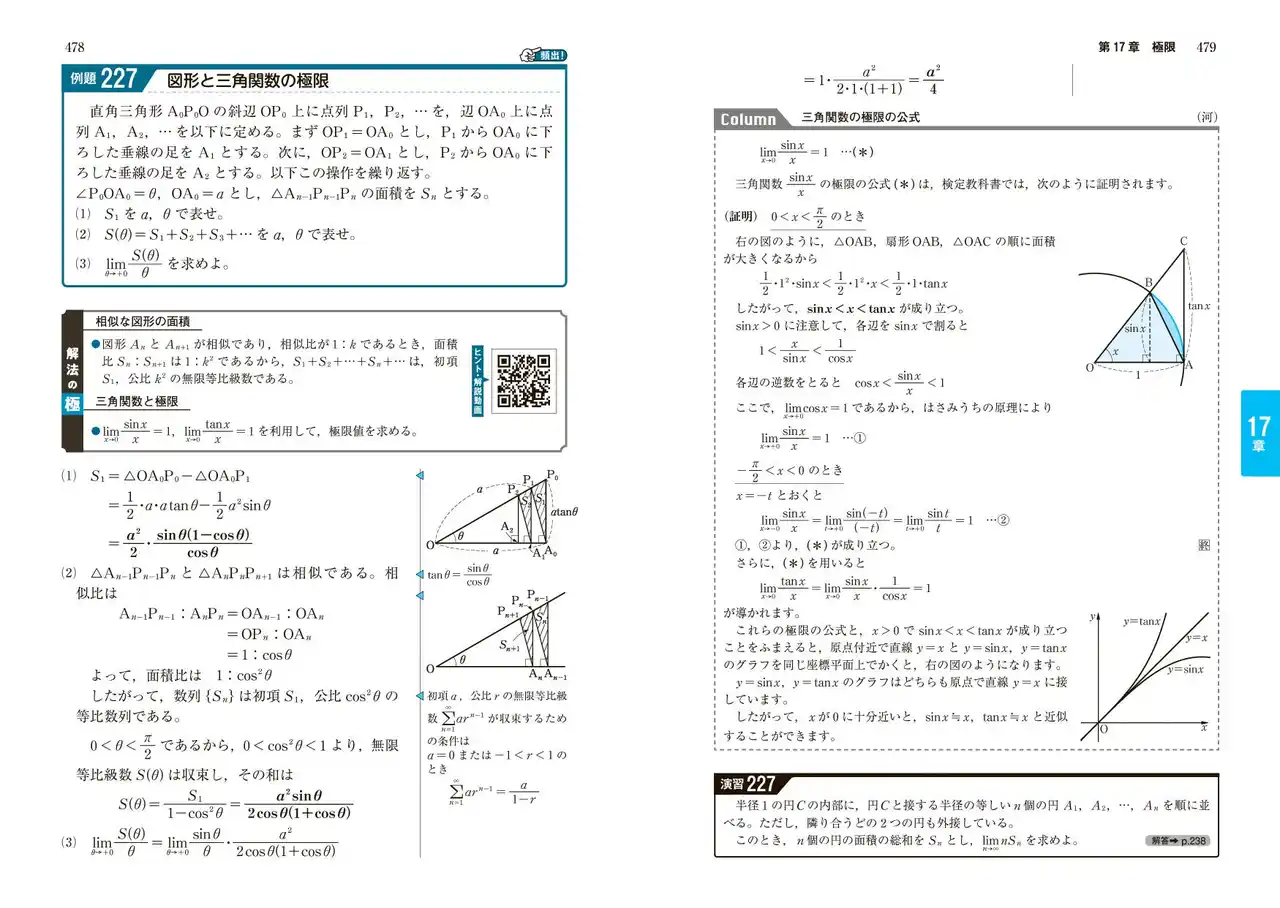 478
頻出!
例題 227 図形と三角関数の極限
直角三角形 A₀P₀O の斜辺 OP₀ 上に点列 P₁, P₂, … を, 辺 OA₀ 上に点
列 A₁, A₂, … を以下に定める。まず OP₁=OA₀ とし, P₁ から OA₀ に下
ろした垂線の足を A₁ とする。次に, OP₂=OA₁ とし, P₂ から OA₀ に下
ろした垂線の足を A₂ とする。以下この操作を繰り返す。
∠P₀OA₀=θ, OA₀=a とし, △Aₙ₋₁Pₙ₋₁Pₙ の面積を Sₙ とする。
(1) S₁ を a, θ で表せ。
(2) S(θ)=S₁+S₂+S₃+… を a, θ で表せ。
(3) lim_{θ→+0} S(θ)/θ を求めよ。
解法の極
相似な図形の面積
●図形 Aₙ と Aₙ₊₁ が相似であり, 相似比が 1:k であるとき, 面積
比 Sₙ:Sₙ₊₁ は 1:k² であるから, S₁+S₂+…+Sₙ+… は, 初項
S₁, 公比 k² の無限等比級数である。
三角関数と極限
●lim_{x→0} sinx/x =1, lim_{x→0} tanx/x =1 を利用して, 極限値を求める。
ヒント・解説動画
(1) S₁=△OA₀P₀−△OA₀P₁
=1/2・a・a tanθ−1/2 a² sinθ
=a²/2・sinθ(1−cosθ)/cosθ
(2) △Aₙ₋₁Pₙ₋₁Pₙ と △AₙPₙPₙ₊₁ は相似である。相
似比は
Aₙ₋₁Pₙ₋₁:AₙPₙ=OAₙ₋₁:OAₙ
=OPₙ:OAₙ
=1:cosθ
よって, 面積比は 1:cos²θ
したがって, 数列 {Sₙ} は初項 S₁, 公比 cos²θ の
等比数列である。
0<θ<π/2 であるから, 0<cos²θ<1 より, 無限
等比級数 S(θ) は収束し, その和は
S(θ)=S₁/(1−cos²θ)=a² sinθ/2cosθ(1+cosθ)
(3) lim_{θ→+0} S(θ)/θ=lim_{θ→+0} sinθ/θ・a²/2cosθ(1+cosθ)
P₀
P₁
P₂
a
S₂
S₁
a tanθ
A₂
O
θ
a
A₁
A₀
tanθ=sinθ/cosθ
Pₙ₋₁
Pₙ
Pₙ₊₁
Sₙ
Sₙ₊₁
O
θ
Aₙ
Aₙ₋₁
初項 a, 公比 r の無限等比級
数 ∑_{n=1}^{∞} arⁿ⁻¹ が収束するため
の条件は
a=0 または −1<r<1 の
とき
∑_{n=1}^{∞} arⁿ⁻¹=a/(1−r)
第17章 極限 479
=1・a²/2・1・(1+1)=a²/4
Column 三角関数の極限の公式 (河)
lim_{x→0} sinx/x=1 …(*)
三角関数 sinx/x の極限の公式(*)は, 検定教科書では, 次のように証明されます。
(証明) 0<x<π/2 のとき
右の図のように, △OAB, 扇形 OAB, △OAC の順に面積
が大きくなるから
1/2・1²・sinx<1/2・1²・x<1/2・1・tanx
したがって, sinx<x<tanx が成り立つ。
sinx>0 に注意して, 各辺を sinx で割ると
1<x/sinx<1/cosx
各辺の逆数をとると cosx<sinx/x<1
ここで, lim_{x→+0} cosx=1 であるから, はさみうちの原理により
lim_{x→+0} sinx/x=1 …①
−π/2<x<0 のとき
x=−t とおくと
lim_{x→−0} sinx/x=lim_{t→+0} sin(−t)/(−t)=lim_{t→+0} sint/t=1 …②
①, ②より, (*)が成り立つ。 終
さらに, (*)を用いると
lim_{x→0} tanx/x=lim_{x→0} sinx/x・1/cosx=1
が導かれます。
これらの極限の公式と, x>0 で sinx<x<tanx が成り立つ
ことをふまえると, 原点付近で直線 y=x と y=sinx, y=tanx
のグラフを同じ座標平面上でかくと, 右の図のようになります。
y=sinx, y=tanx のグラフはどちらも原点で直線 y=x に接
しています。
したがって, x が 0 に十分近いと, sinx≒x, tanx≒x と近似
することができます。
C
B
tanx
sinx
x
O
1
A
y
y=tanx
y=x
y=sinx
O
x
17章
演習 227
半径1の円Cの内部に, 円Cと接する半径の等しい n 個の円 A₁, A₂, …, Aₙ を順に並
べる。ただし, 隣り合うどの2つの円も外接している。
このとき, n 個の円の面積の総和を Sₙ とし, lim_{n→∞} nSₙ を求めよ。
解答➡ p.238